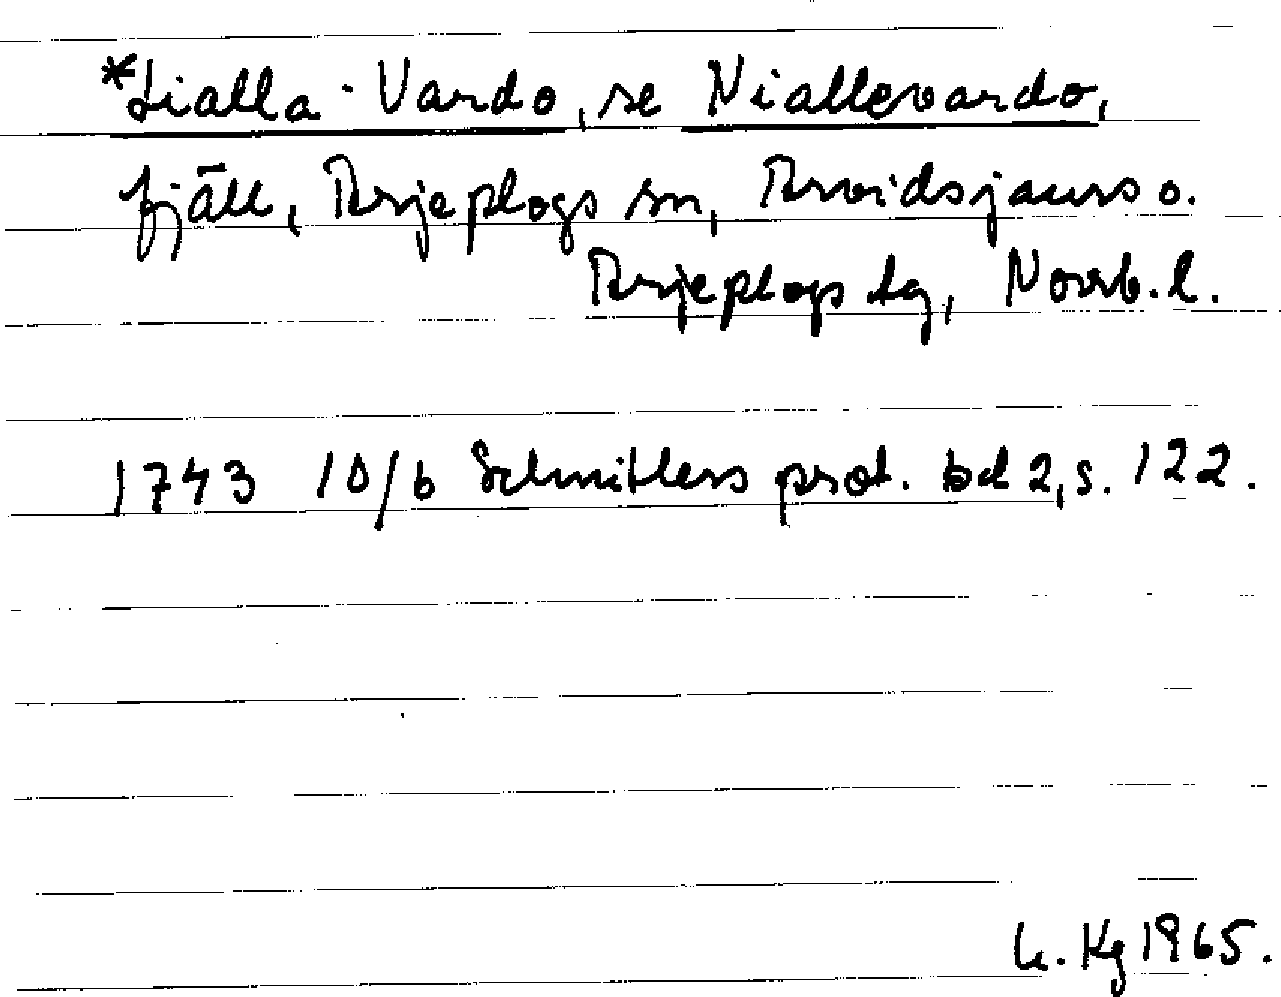 *Lialla-Vardo, se Niallevardo,
fjäll, Arjeplogs sn, Arvidsjaurs o.
Arjeplogs tg, Norrb. l.
1743 10/6 Schnitlers prot. bd 2, s. 122.
Kg 1965.